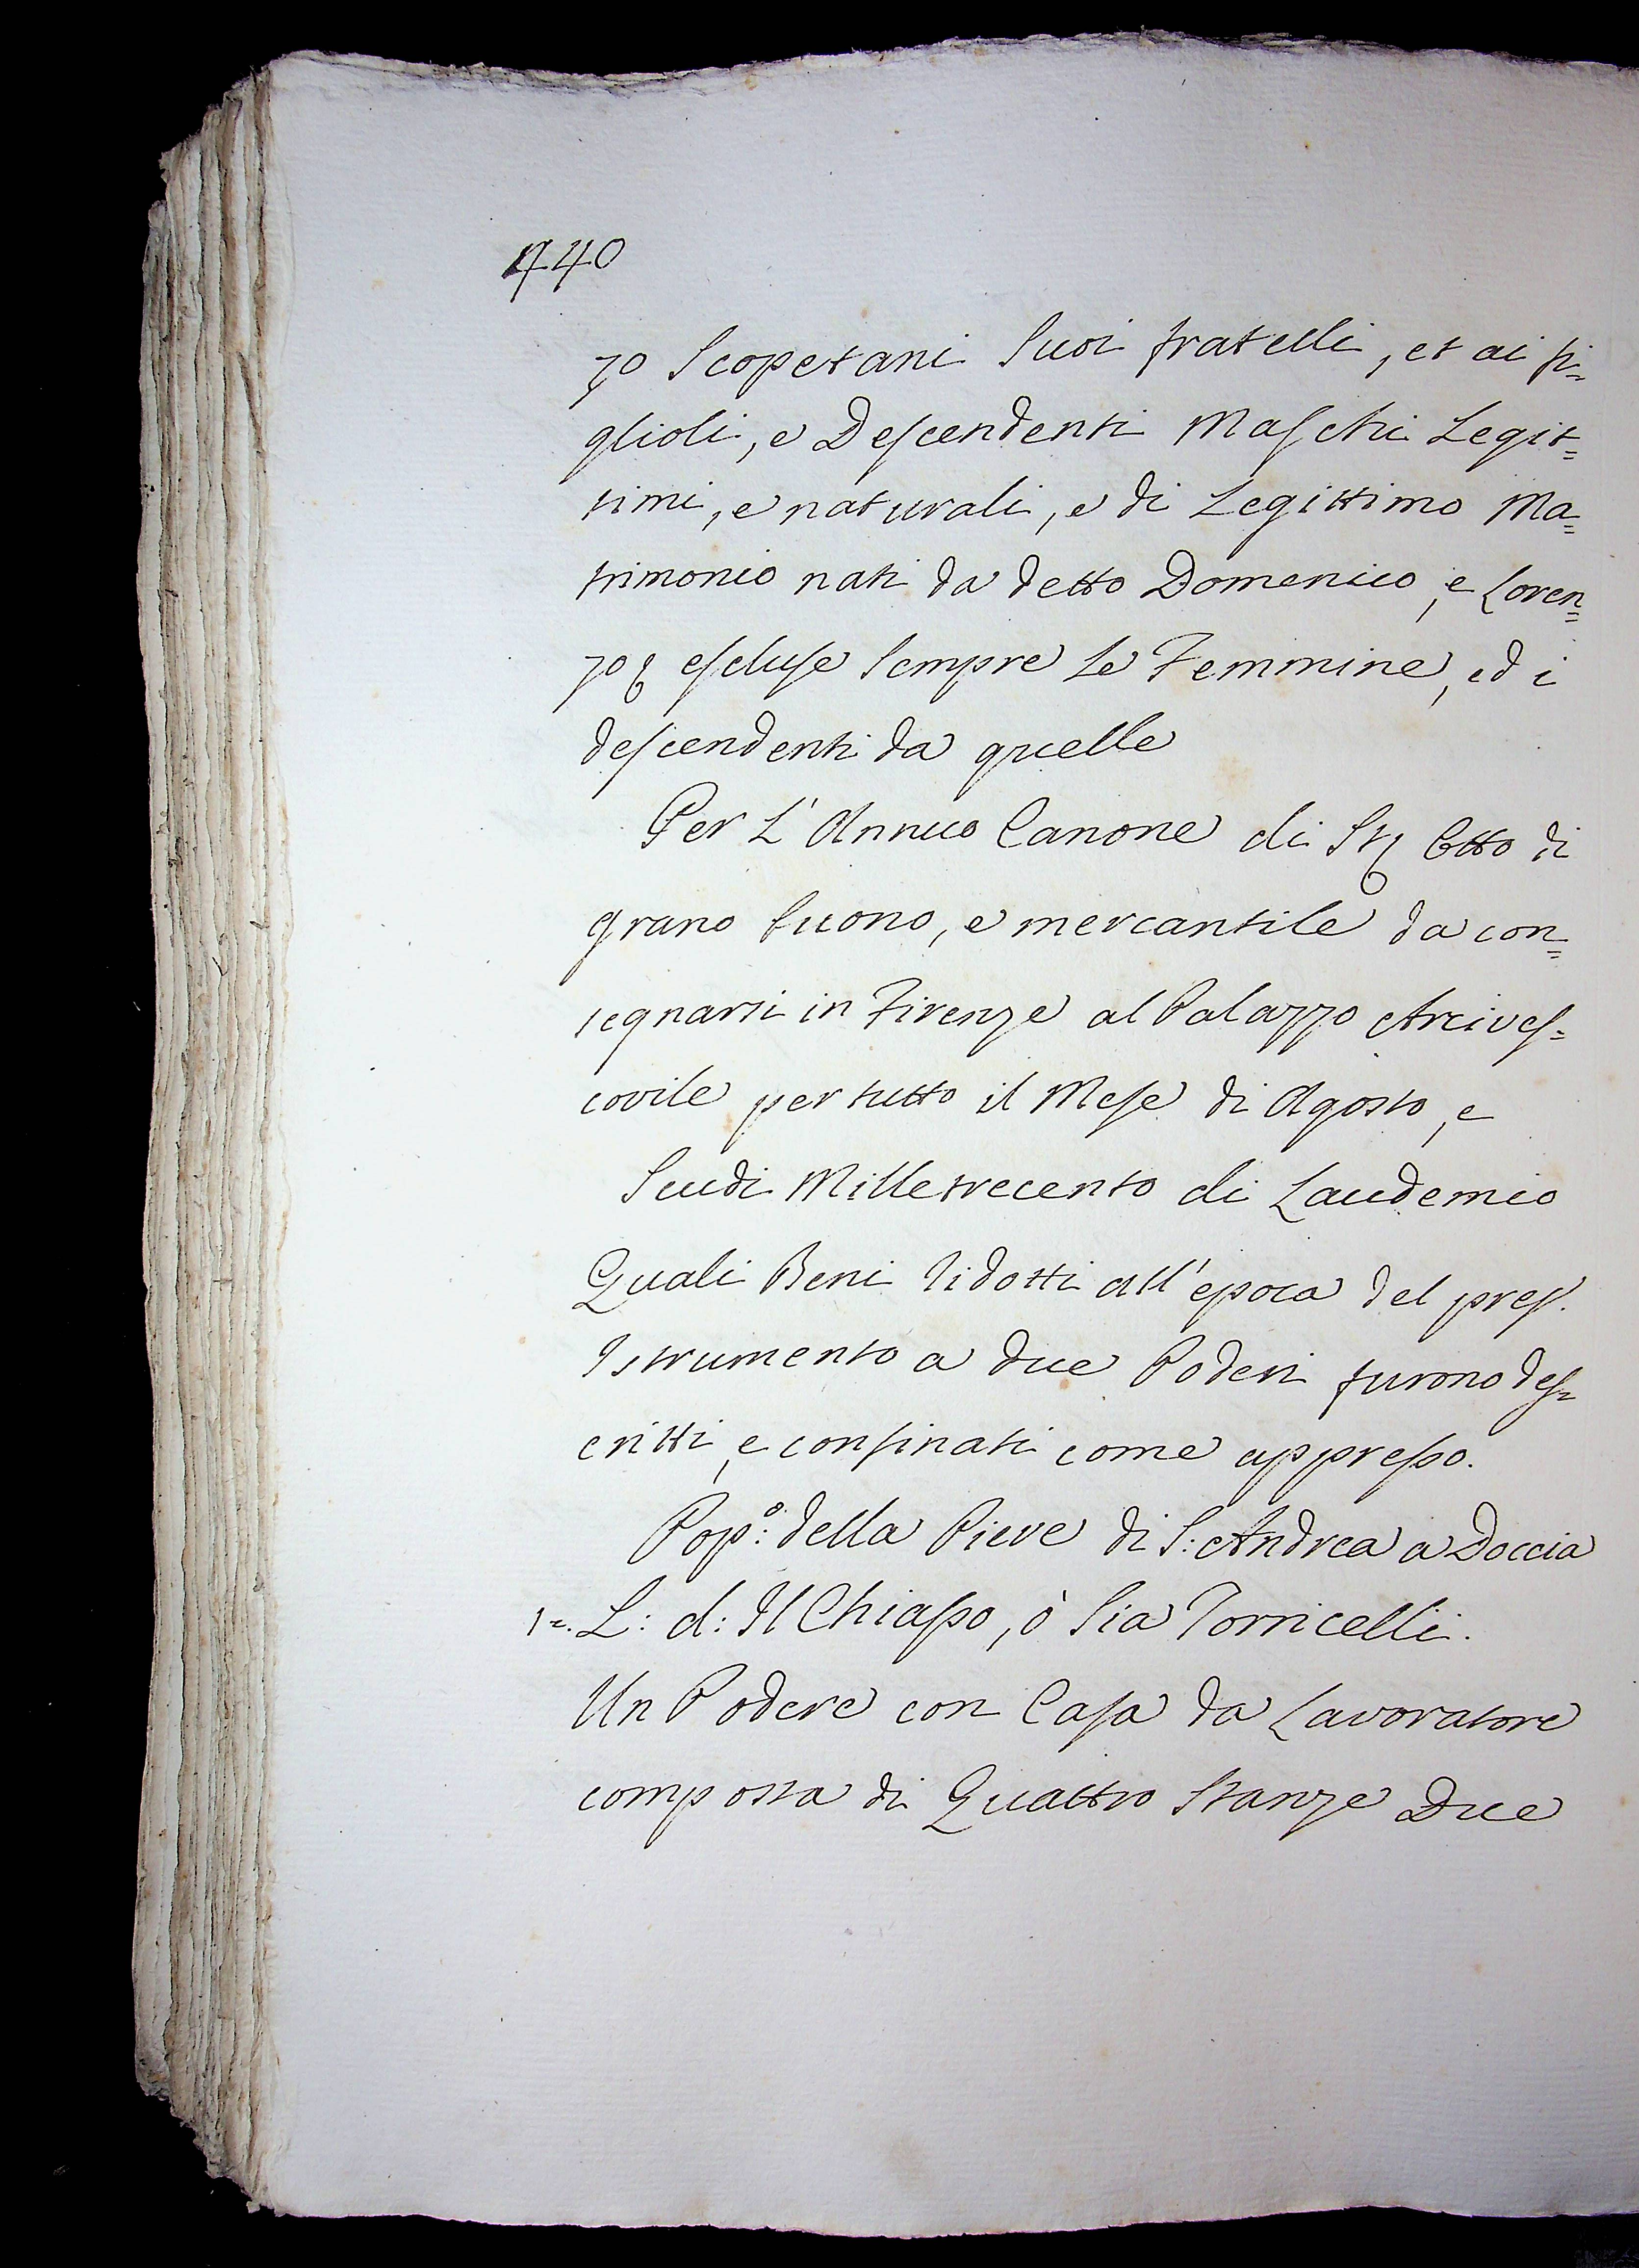 440
zo Scopetani Suoi fratelli, et ai fi=
glioli, e Descendenti Maschi Legit=
timi, e naturali, e di Legittimo Ma=
trimonio nati da detto Domenico, e Loren=
zo escluse Sempre Le Femmine, ed i
descendenti da quelle
Per L'Annuo Canone di St Otto di
grano buono, e mercantile da con=
segnarsi in Firenze al Palazzo Arcives=
covile per tutto il Mese di Agosto, e
Scudi Milletrecento di Laudemio
Quali Beni Ridotti all'epoca del pres.
Istrumento a due Poderi furono des=
critti, e confinati come appresso.
Pop.º: della Pieve di S: Andrea a Doccia
1=. L: d: Il Chiasso, ò Sia Torricelli.
Un Podere con Casa da Lavoratore
composta di Quattro Stanze Due